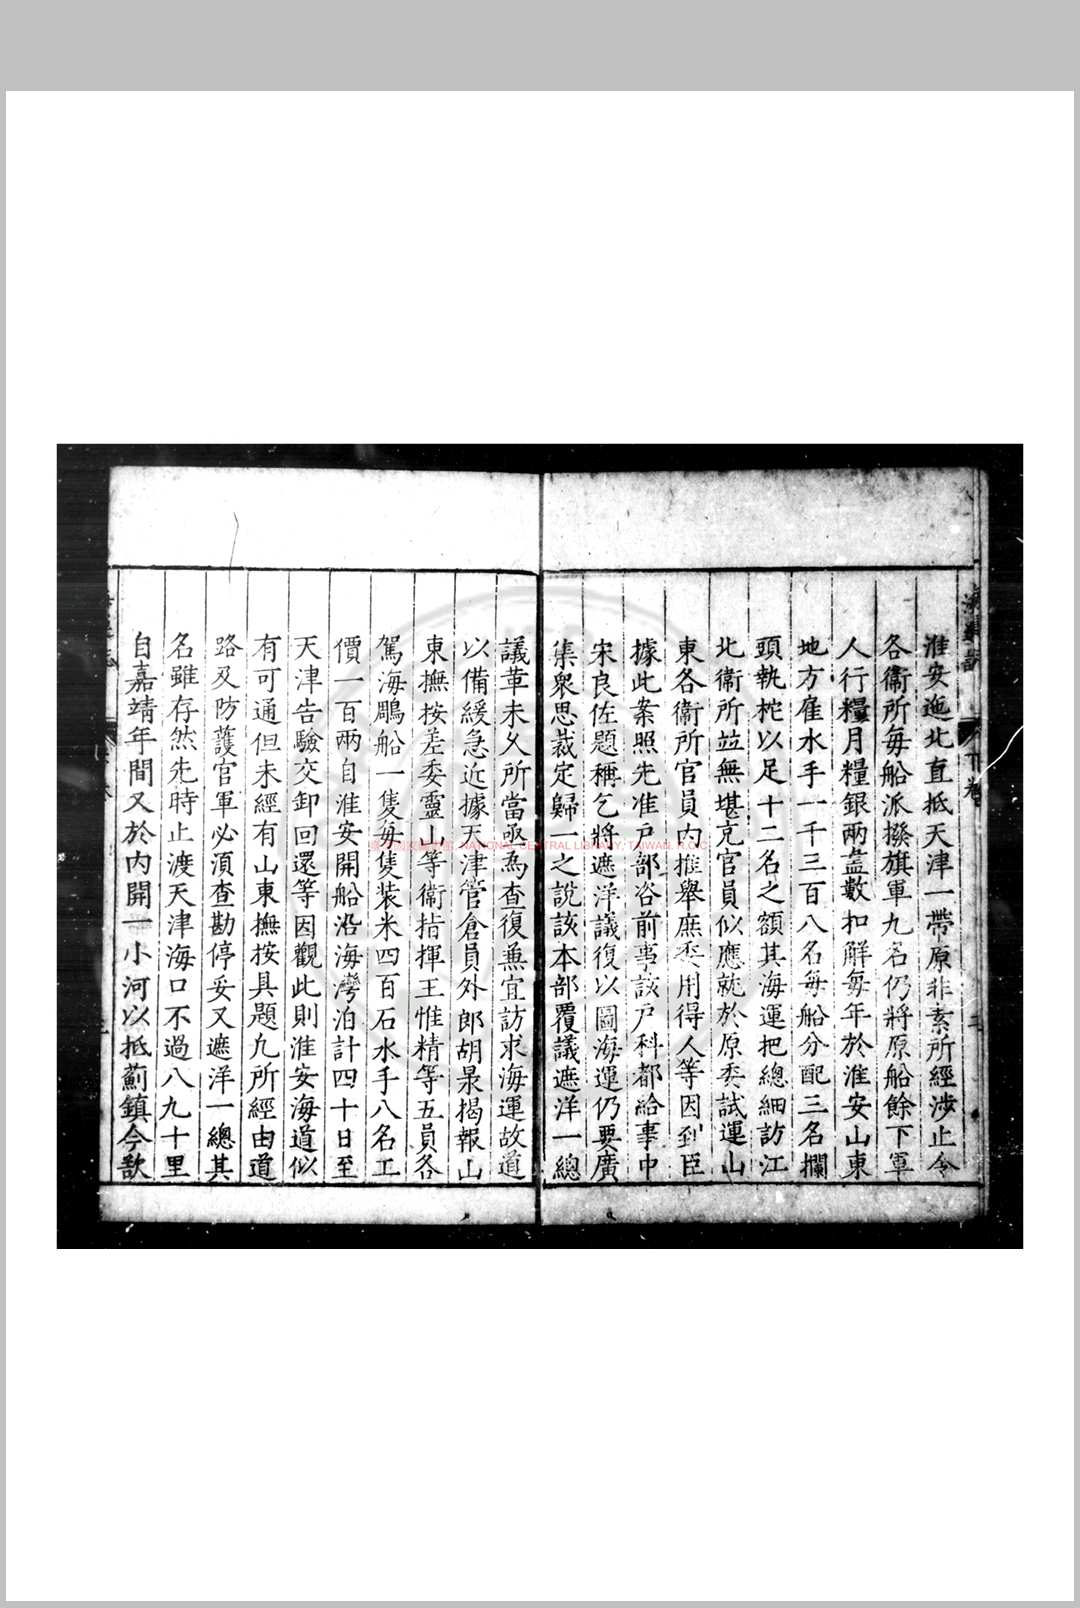 淮安迤北直抵天津一帶原非素所經涉止令
各衞所每船派撥旗軍九名仍將原船餘下軍
人行糧月糧銀兩盖數扣觧每年於淮安山東
地方雇水手一千三百八名每船分配三名攔
頭執柁以足十二名之額其海運把總細訪江
北衞所並無堪充官員似應就於原委試運山
東各衞所官員内推舉庶委用得人等因到臣
據此案照先准戸部咨前事該戸科都給事中
宋良佐題稱乞將遮洋議復以圖海運仍要廣
集衆思裁定歸一之說該本部覆議遮洋一總
議革未乆所當亟為查復兼宜訪求海運故道
以備緩急近據天津管倉員外郎胡杲揭報山
東撫按差委靈山等衞指揮王惟精等五員各
駕海鵰船一隻每隻装米四百石水手八名工
價一百兩自淮安開船沿海灣泊計四十日至
天津告驗交卸回還等因觀此則淮安海道似
有可通但未經有山東撫按具題九所經由道
路及防護官軍必湏查勘停妥又遮洋一總其
名雖存然先時止渡天津海口不過八九十里
自嘉靖年間又於内開一小河以抵薊鎮今欲
NATIONAL CENTRAL LIBRARY, TAIWAN, R.O.C